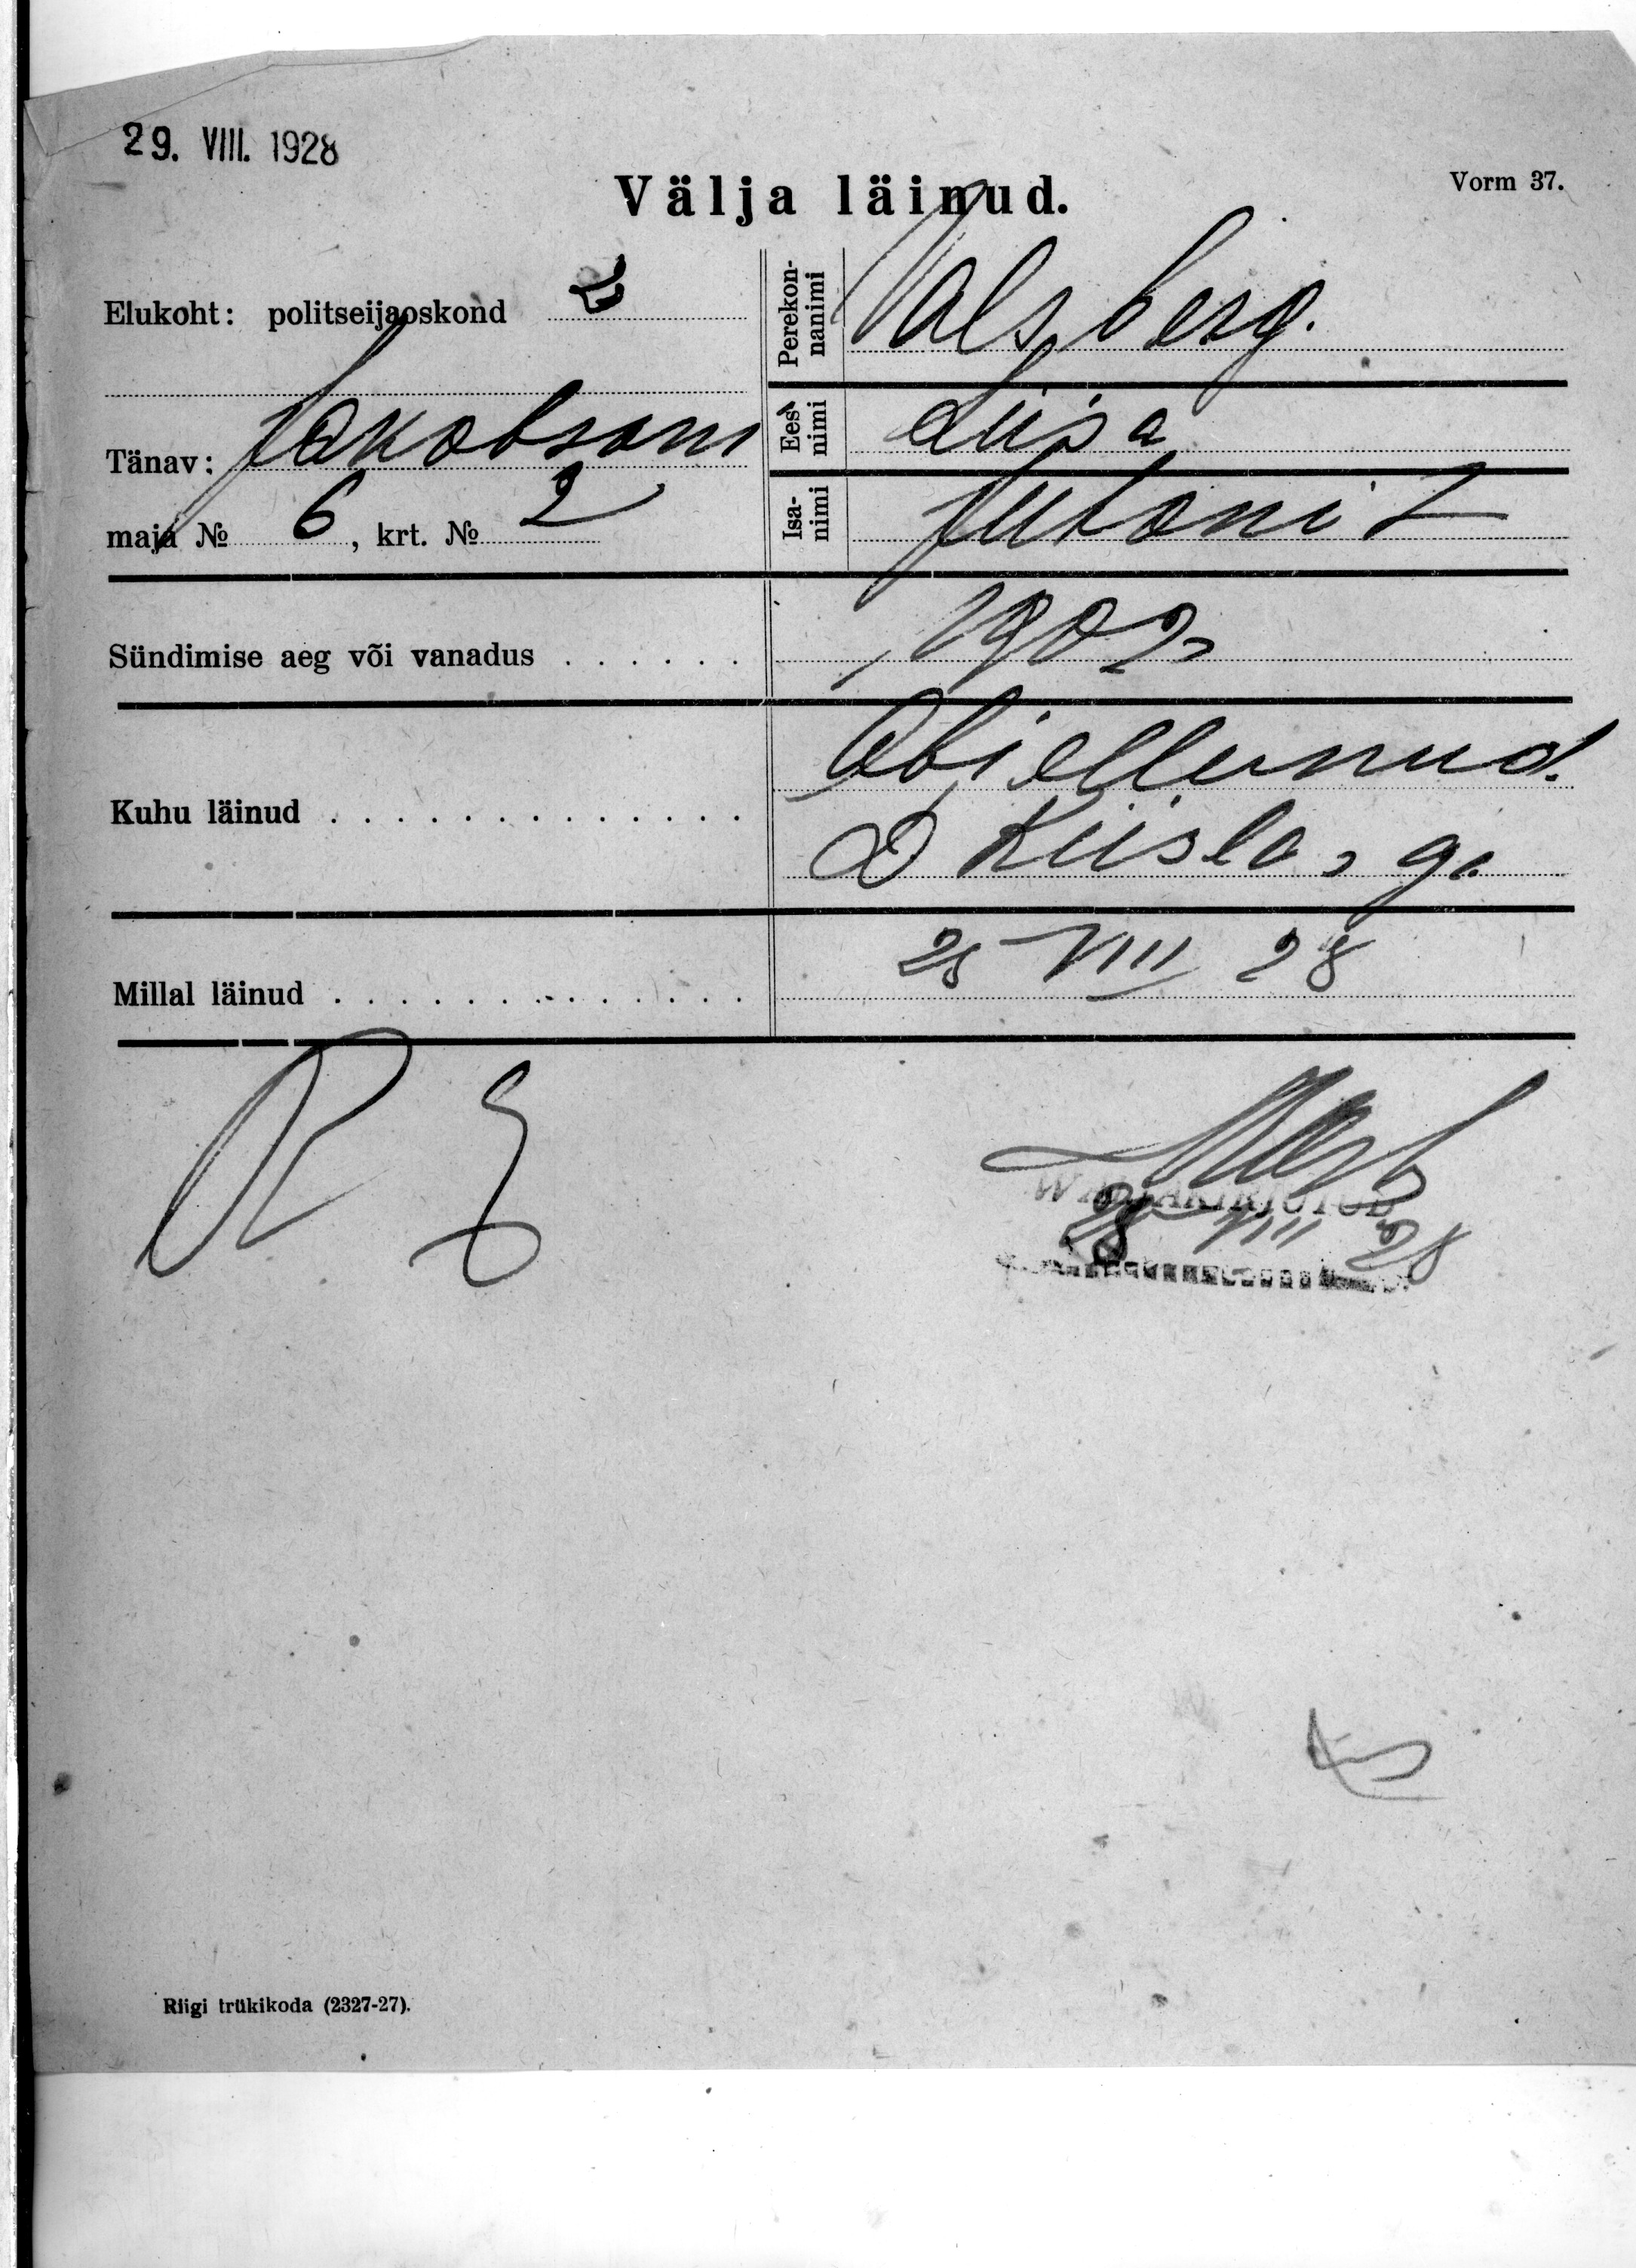 29. VIII. 1928
Välja läinud.
Vorm 37.
Elukoht: politseijaoskond
Perekonnanimi Valsberg.
Tänav: Jakobsoni
Eesnimi Liisa
maja № 6, krt. № 2
Isanimi
Sündimise aeg või vanadus . . . . . . 1902
Kuhu läinud . . . . . . . . . . . . . Abiellunud.
Kiisla, ga
Millal läinud . . . . . . . . . . . . . 25 VIII 28
VIII 28
Riigi trükikoda (2327-27).